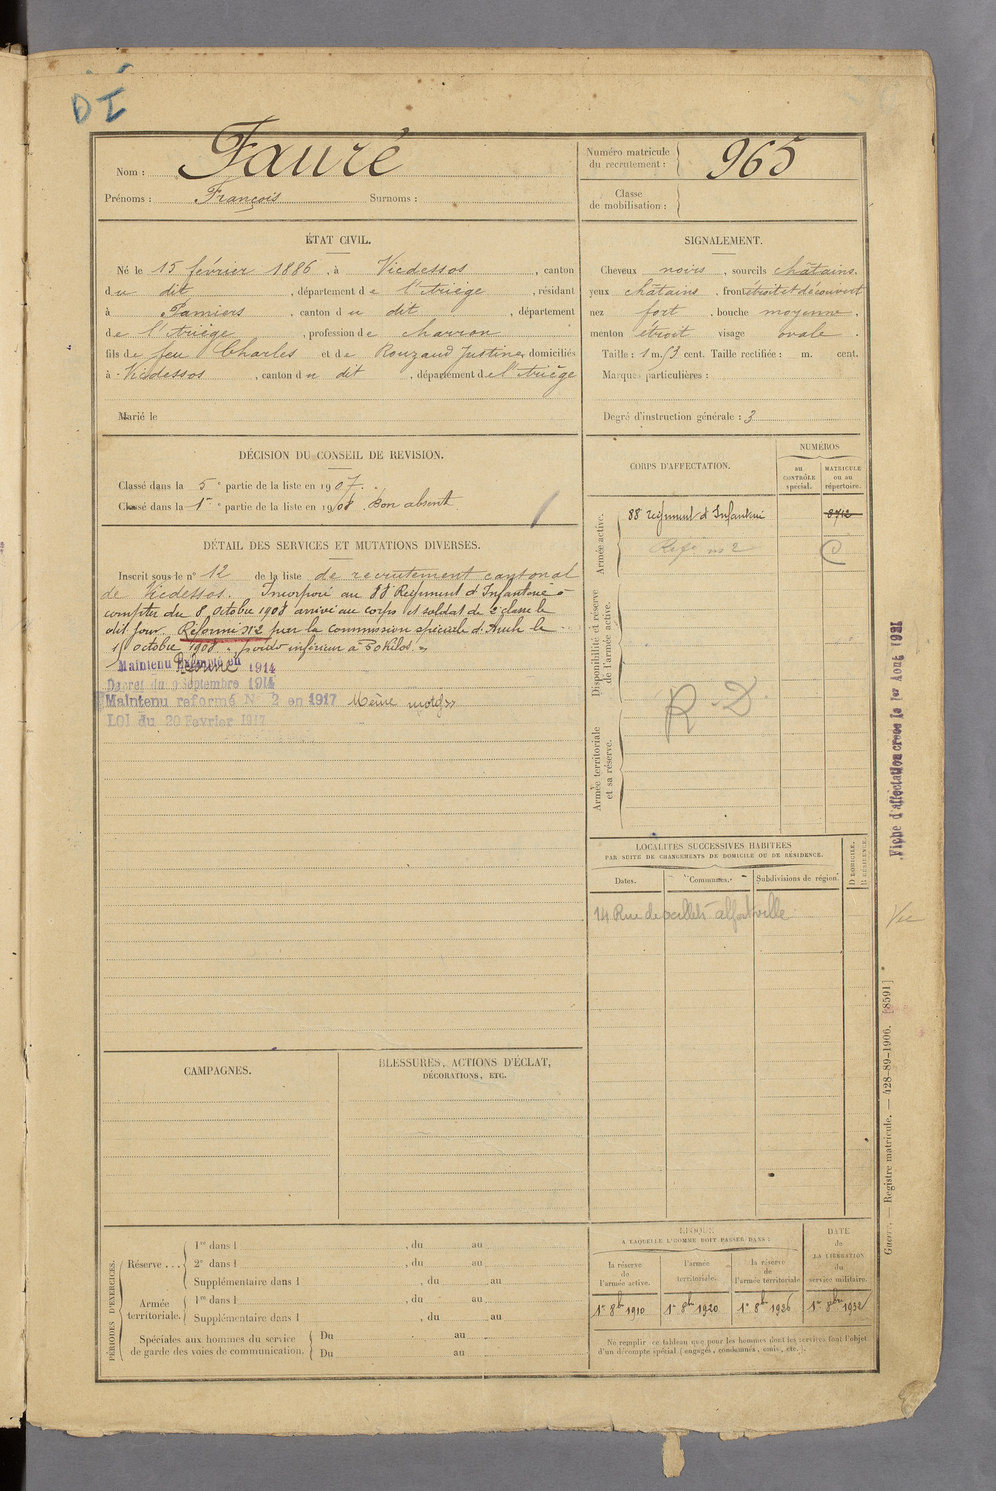 DI
Nom : Fauré
Prénoms : François Surnoms :
Numéro matricule
du recrutement : 965
Classe
de mobilisation :
ÉTAT CIVIL.
Né le 15 février 1886, à Vicdessos, canton
du dit, département de l'Ariège, résidant
à Pamiers, canton du dit, département
de l'Ariège, profession de charron
fils de feu Charles et de Rouzaud Justine, domiciliés
à Vicdessos, canton du dit, département de l'Ariège
Marié le
SIGNALEMENT.
Cheveux noirs, sourcils châtains.
yeux châtains, front étroit et découvert
nez fort, bouche moyenne,
menton étroit visage ovale.
Taille : 1 m. 73 cent. Taille rectifiée : m. cent.
Marques particulières :
Degré d'instruction générale : 3
DÉCISION DU CONSEIL DE REVISION.
Classé dans la 5e partie de la liste en 1907.
Classé dans la 1re partie de la liste en 1908. Bon absent
DÉTAIL DES SERVICES ET MUTATIONS DIVERSES.
Inscrit sous le n° 12 de la liste de recrutement cantonal
de Vicdessos. Incorporé au 88 Régiment d'Infanterie à
compter du 8 Octobre 1908 arrivé au corps et soldat de 2 classe le
dit jour. Réformé N°2 par la commission spéciale d'Auch le
octobre 1908 poids inférieur à 50 kilos.
Maintenu Exempté en 1914
Réformé
Decret du 9 Septembre 1914
Maintenu reformé N° 2 en 1917 Même motif
LOI du 20 Fevrier 1917
CORPS D'AFFECTATION.
NUMÉROS
au
CONTRÔLE
spécial.
MATRICULE
ou au
répertoire.
Armée active.
88 régiment d'Infanterie 8712
Réfé n° 2
Disponibilité et réserve
de l'armée active.
R. D.
Armée territoriale
et sa réserve.
LOCALITÉS SUCCESSIVES HABITÉES
PAR SUITE DE CHANGEMENTS DE DOMICILE OU DE RÉSIDENCE.
Dates. Communes. Subdivisions de région.
D DOMICILE.
R RÉSIDENCE.
14 Rue de alfortville
Fiche d'affectation créée le 1er Aout 1921
Vic
Guerre. — Registre matricule. — 428-89-1906. [8591]
CAMPAGNES.
BLESSURES, ACTIONS D'ÉCLAT,
DÉCORATIONS, ETC.
PÉRIODES D'EXERCICES.
Réserve ... 1re dans l , du au
2e dans l , du au
Supplémentaire dans l , du au
Armée
territoriale. 1re dans l , du au
Supplémentaire dans l , du au
Spéciales aux hommes du service
de garde des voies de communication. Du au
Du au
ÉPOQUE
À LAQUELLE L'HOMME DOIT PASSER DANS :
la réserve
de
l'armée active.
l'armée
territoriale.
la réserve
de
l'armée territoriale.
DATE
de
LA LIBÉRATION
du
service militaire.
1er 8bre 1910 1er 8bre 1920 1er 8bre 1926 1er 8bre 1932
Ne remplir ce tableau que pour les hommes dont les services font l'objet
d'un décompte spécial (engagés, condamnés, omis, etc.).